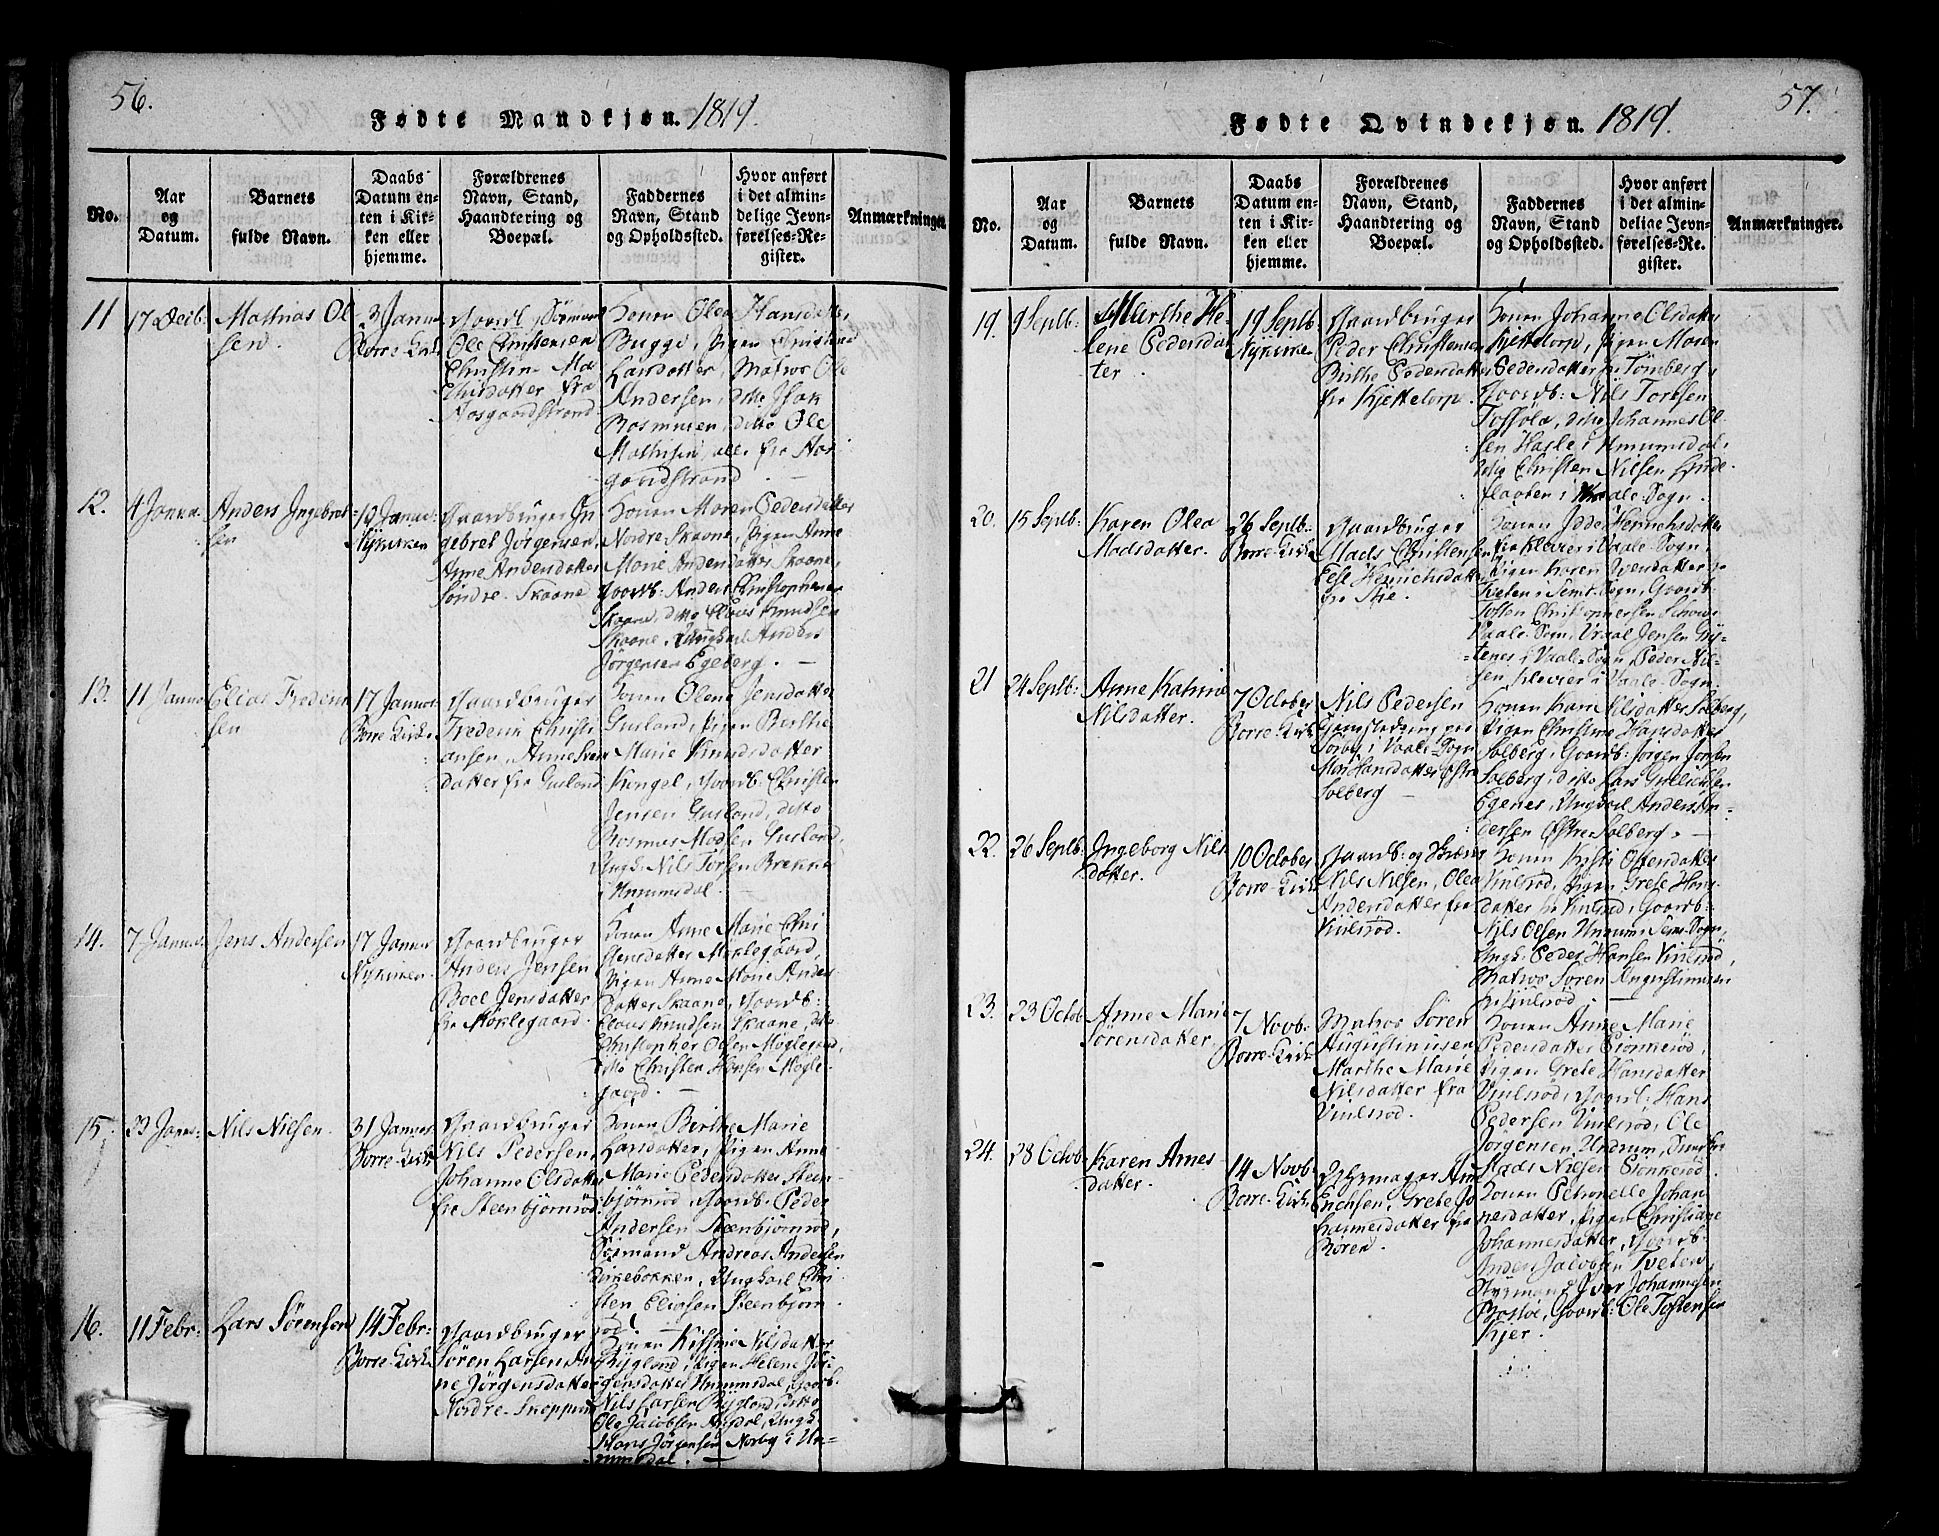 56.
Fødte Mandkjøn. 1819.
No.
Aar
og
Datum.
Barnets
fulde Navn.
Daabs
Datum en-
ten i Kir-
ken eller
hjemme.
Forældrenes
Navn, Stand,
Haandtering og
Boepæl.
Faddernes
Navn, Stand
og Opholdssted.
Hvor anført
i det almin-
delige Jevn-
førelses-Re-
gister.
Anmærkninger.
11
17 Decb.
Mathias Ol
sen.
3 Janua
Borre-Kirke
Ole Christensen
fra
Aasgaardstrand
Konen Olea Hansdatter
Bugge, Pigen Christine
Larsdatter, Matros Ole
Andersen, ditto Isak
Rasmusen, ditto Ole
Mathisen, alle fra Aas
gaardstrand. —
12.
4 Janua.
Anders Ingebret
sen
10 Januar
Nykirken
Gaardbruger In
gebret Jørgensen,
Anne Andersdatter
Søndre Skaane
Konen Maren Pedersdatter
Nordre Skaane, Pigen Anne
Marie Andersdatter Skaane,
Gaardb: Anders Christophersen
Skaane, ditto Claus Knudsen
Skaane, Ungkarl Anders
Jørgensen Egeberg. —
13.
11 Janua
Elias Frederik
sen
17 Januar
Borre Kirke
Gaardbruger
Frederik Christi
ansen, Anne
datter fra Gusland
Konen Olene Jensdatter
Gusland, Pigen Berthe
Marie Knudsdatter
Kongel, Gaardb: Christen
Jensen Gusland, ditto
Rasmus Madsen Gusland,
Ungk: Nils Torsen Brekke
i Unumsdal. —
14.
7 Januar.
Jens Andersen
17 Januar
Nykirken.
Gaardbruger
Anders Jensen
Boel Jensdatter
fra Møklegaard.
Konen Anne Marie Chri
stensdatter Møklegaard,
Pigen Anne Marie Anders
datter Skaane, Gaardb:
Claus Knudsen Skaane, ditto
Christopher Olsen Møglegaard,
ditto Christen Hansen Møgle
gaard. —
15.
23 Janu:
Nils Nielsen.
31 Januar
Borre-Kirke
Gaardbruger
Nils Pedersen,
Johanne Olsdatter
fra Steenbjørnrød.
Konen Berthe Marie
Larsdatter, Pigen Anne
Marie Pedersdatter Steen-
bjørnrød, Gaardb: Peder
Andersen Steenbjørnrød,
Sømand Andreas Andersen
Kirkebakken, Ungkarl Chri
sten Eliasen Steenbjørn
16.
11 Febr:
Lars Sørensen
14 Febr:
Borre-Kirke
Gaardbruger
Søren Larsen An
ne Jørgensdatter
Nordre-Skoppum
Konen Kirstine Nilsdatter
Bygland, Pigen Helene Jør
gensdatter Unumsdal, Gaardb.
Nils Larsen Bygland, ditto
Ole Jacobsen Ungk:
Hans Jørgensen Norby i Un-
numsdal. —
57.
Fødte Qvindekjøn. 1819.
No.
Aar
og
Datum.
Barnets
fulde Navn.
Daabs
Datum en-
ten i Kir-
ken eller
hjemme.
Forældrenes
Navn, Stand,
Haandtering og
Boepæl.
Faddernes
Navn, Stand
og Opholdssted.
Hvor anført
i det almin-
delige Jevn-
førelses-Re-
gister.
Anmærkninger.
19.
9 Septb:
Marthe He-
lene Pedersdat
ter.
19 Septb
Nykirken
Gaardbruger
Peder Christensen
Birthe Pedersdatter
fra Kjettelorp.
Konen Johanne Olsdatter
Kjettelorp, Pigen Maren
Pedersdatter fra Tønsberg,
Gaardb: Nils Toresen
ditto Johannes Ol
sen Hasle i Unumsdal,
ditto Christen Nilsen Linde
flaaten i Vaale-Sogn.
20.
15 Septb:
Karen Olea
Madsdatter.
26 Septb:
Borre-Kirke
Gaardbruger
Mads Christensen
Else Henrichsdatter
fra Skie.
Konen Idde Henrichsdatter
fra Klevier i Vaale-Sogn,
Pigen Karen Iversdatter
i Semt-Sogn, Gaardb:
Tosten Christophersen
Vaale-Sogn, Vraal Jensen
i Vaale-Sogn Peder Nil-
sen Klevier i Vaale-Sogn.
21
24 Septb:
Anne Katrine
Nilsdatter.
7 October
Borre-Kirke
Nils Pedersen
i Vaale-Sogn
Mari Hansdatter Østre
Solberg —
Konen Karn Nilsdatter Solberg,
Pigen Christine Hansdatter
Solberg, Gaardb: Jørgen Jensen
Solberg, ditto Lars Gulliksen
Egenes, Ungkarl Anders An-
dersen Østre Solberg. —
22.
26 Septb:
Ingeborg Nils
datter.
10 October
Borre-Kirke
Nils Nielsen, Olea
Andersdatter fra
Viulsrød.
Konen Kristi Ostensdatter
Viulsrød, Pigen Grete Hans-
datter fra Viulsrød, Gaardb:
Nils Olsen Unrum, Sems-Sogn,
Ungk: Peder Hansen Viulsrød,
Matros Søren Augustinusen
fra Viulsrød. —
23.
23 Octob
Anne Marie
Sørensdatter.
7 Novb:
Borre-Kirke
Matros Søren
Augustinusen
Marthe Marie
Nilsdatter fra
Viulsrød.
Konen Anne Marie
Pedersdatter Bjonkerød,
Pigen Grete Hansdatter
Viulsrød, Gaardb: Hans
Pedersen Viulsrød, Ole
Jørgensen Undrum,
Mads Nielsen Bjonkerød.
24.
28 Octob
Karen Arnes-
datter.
14 Novb:
Borre-Kirke
Erichsen, Grete Jo
hannesdatter fra
Røren.
Konen Petronelle Johan
nesdatter, Pigen Christiane
Johannesdatter, Gaardb:
Anders Jacobsen Tveten,
Styrmand Iver Johannesen
Gaardb: Ole Tostensen
Kjer.